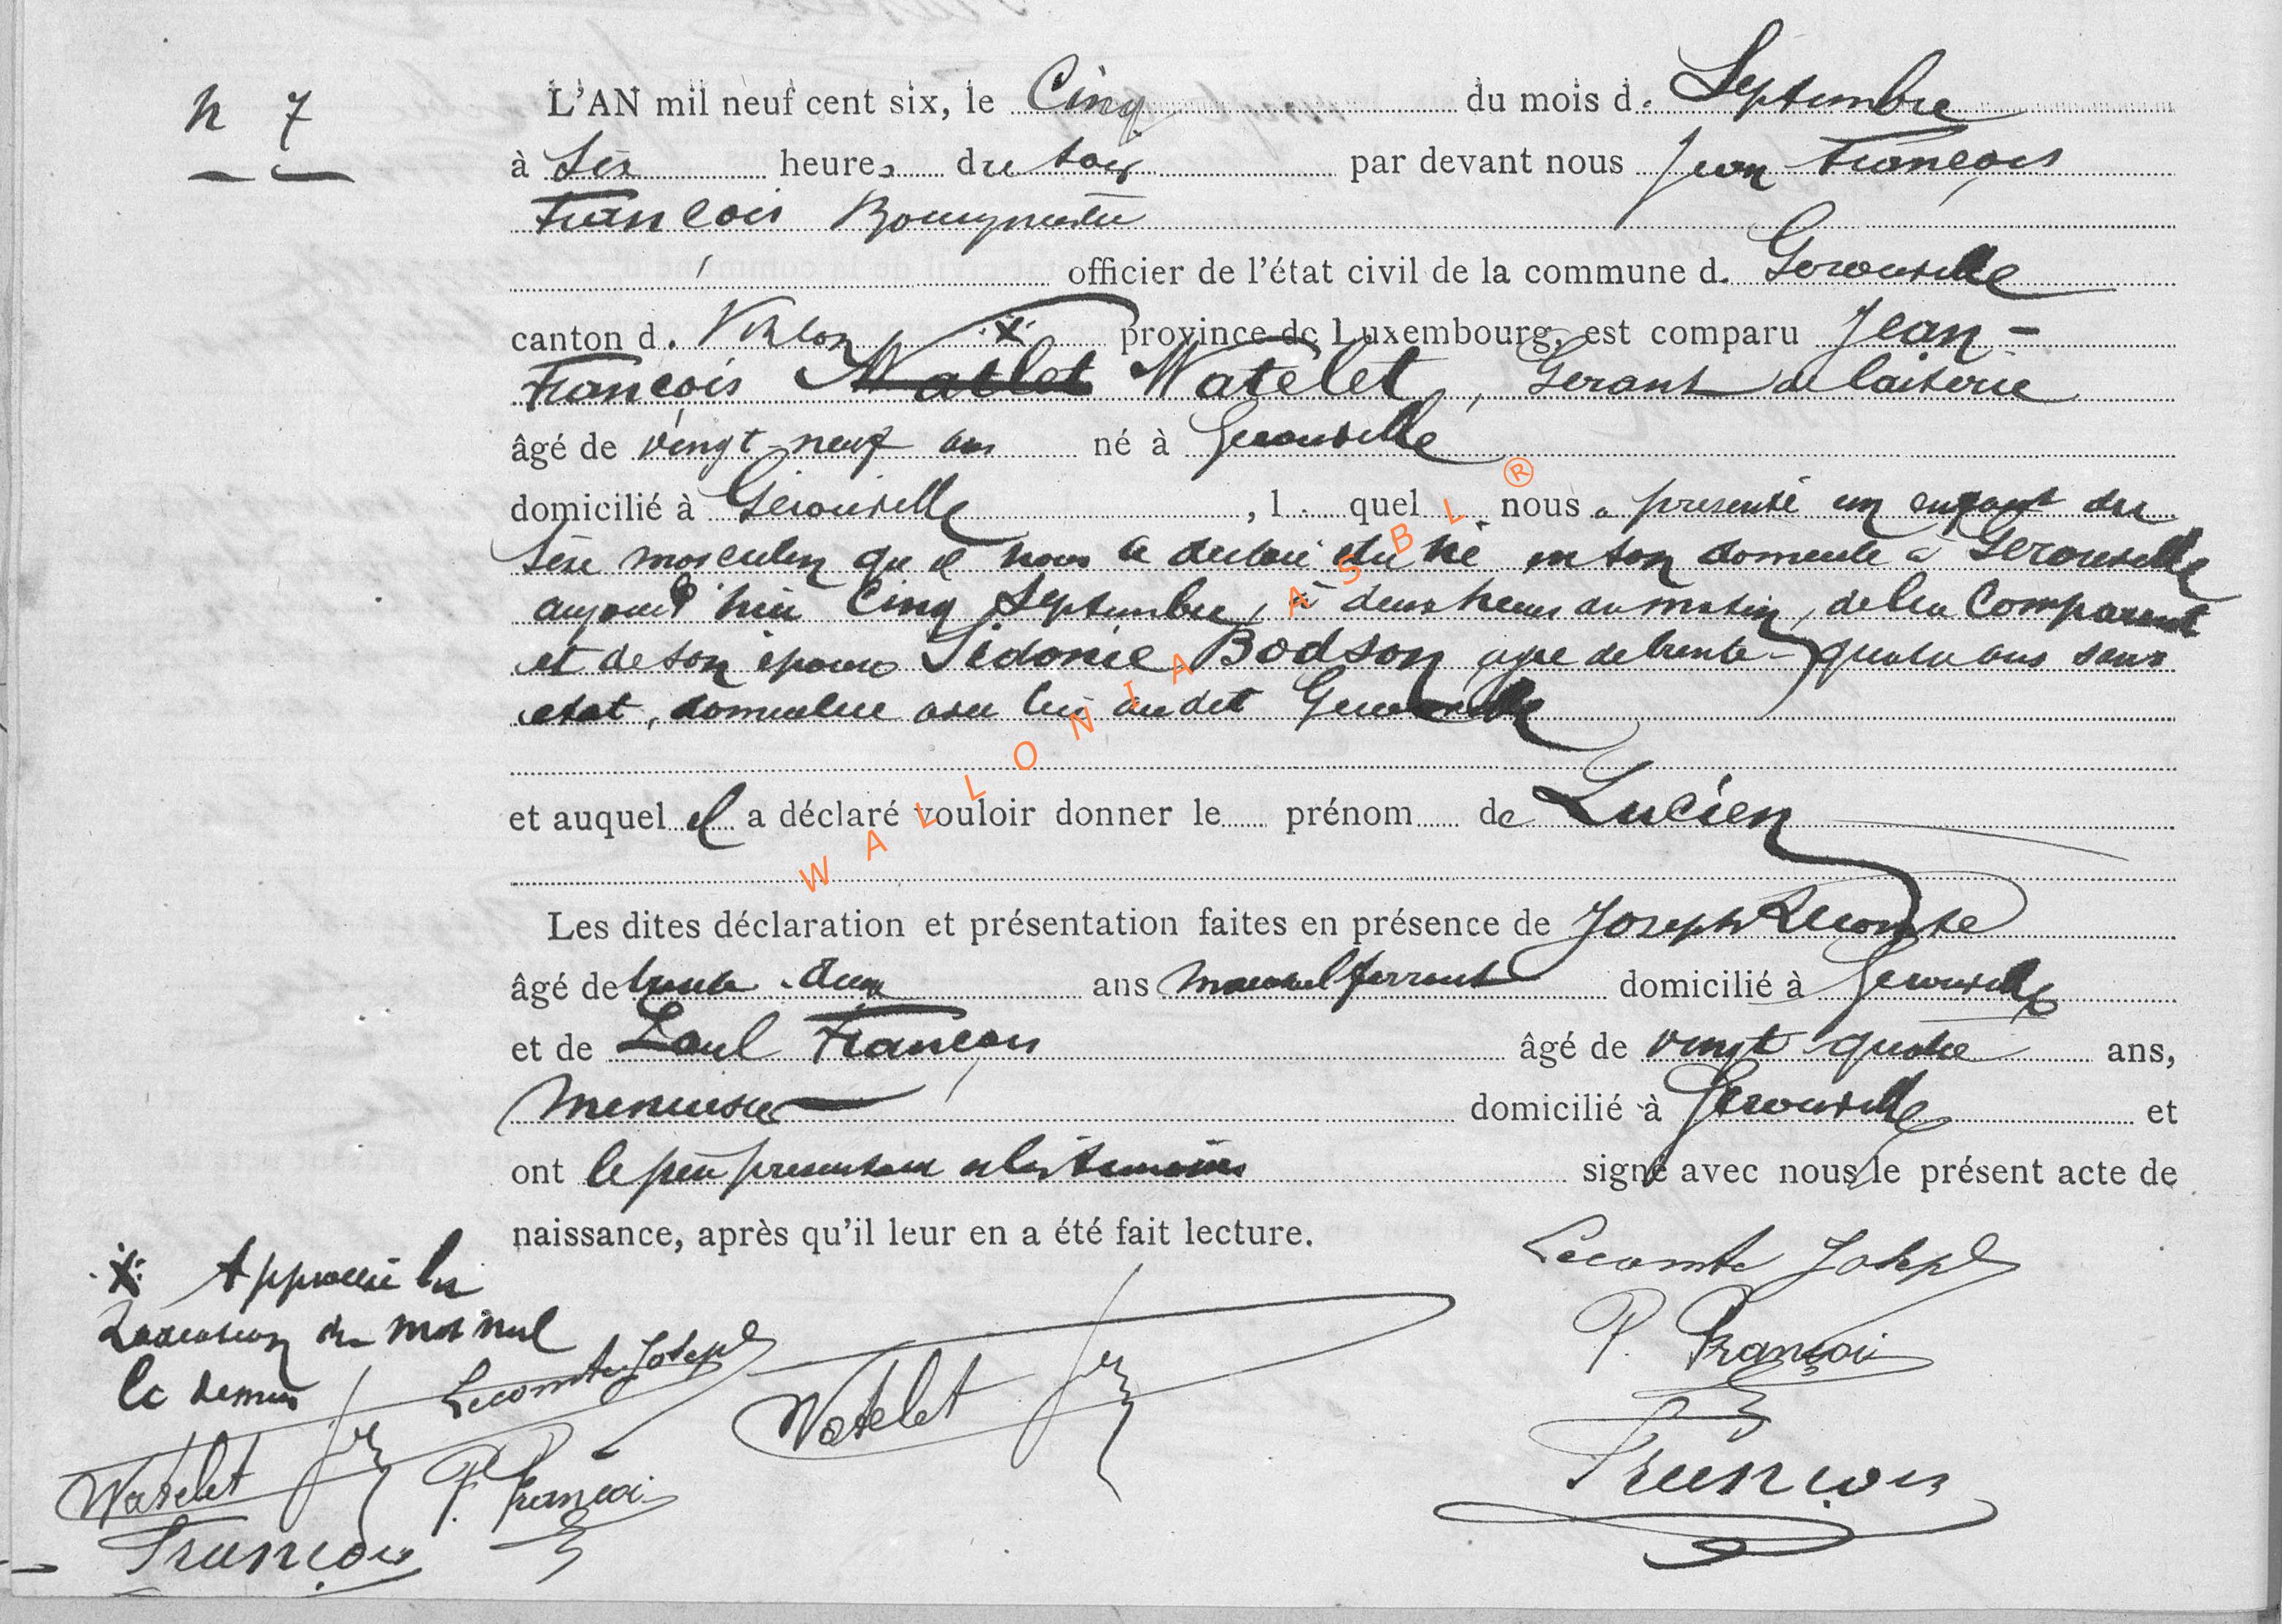 N 7
L'AN mil neuf cent six, le Cinq du mois d. Septembre
à Six heures du soir par devant nous Jean François
François Bourgmestre
officier de l'état civil de la commune d. Gerouville
canton d. Virton X province de Luxembourg, est comparu Jean-
François Watlet Watelet, Gerant de laiterie
âgé de vingt-neuf ans né à Gerouville
domicilié à Gerouville, l quel nous a presenté un enfant du
sexe masculin qu'il nous a declaré être né en son domicile à Gerouville
aujourd'hui Cinq Septembre, à deux heures du matin, de lui Comparant
et de son epouse Sidonie Bodson agée de trente-quatre ans sans
etat, domiciliée avec lui audit Gerouville
et auquel il a déclaré vouloir donner le prénom de Lucien
Les dites déclaration et présentation faites en présence de Joseph Lecomte
âgé de trente-deux ans marechal ferrant domicilié à Gerouville
et de Paul François âgé de vingt quatre ans,
Menuisier domicilié à Gerouville et
ont le père presentant et les temoins signé avec nous le présent acte de
naissance, après qu'il leur en a été fait lecture.
X Approuvé la
radiation du mot nul
Lecomte Joseph
P. François
François
Lecomte Joseph
Watelet
Watelet
P. François
François
WALLONIA ASBL ®